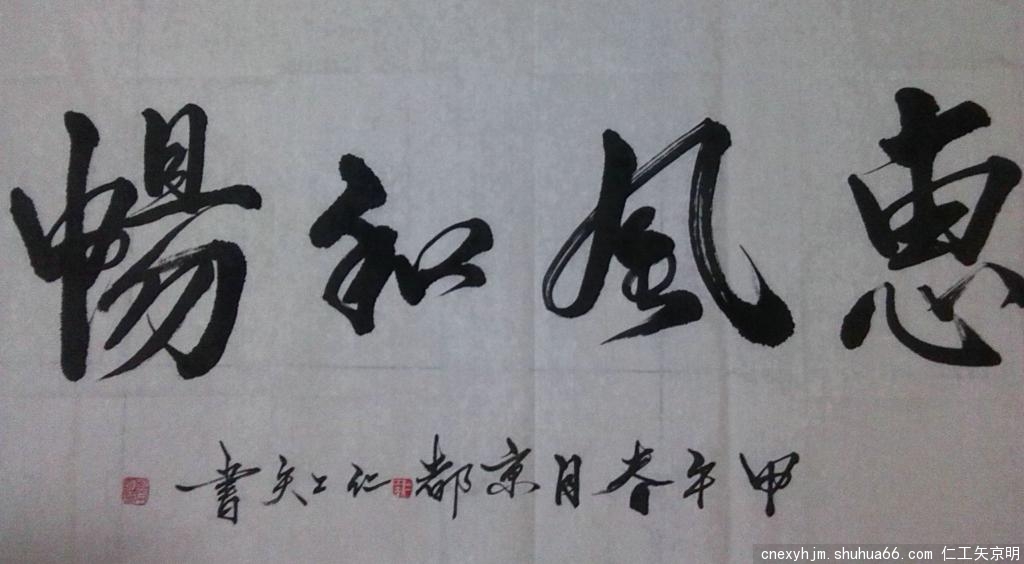 惠風和暢
甲午春月京都仁工矢書
cnexyhjm.shuhua66.com 仁工矢京明